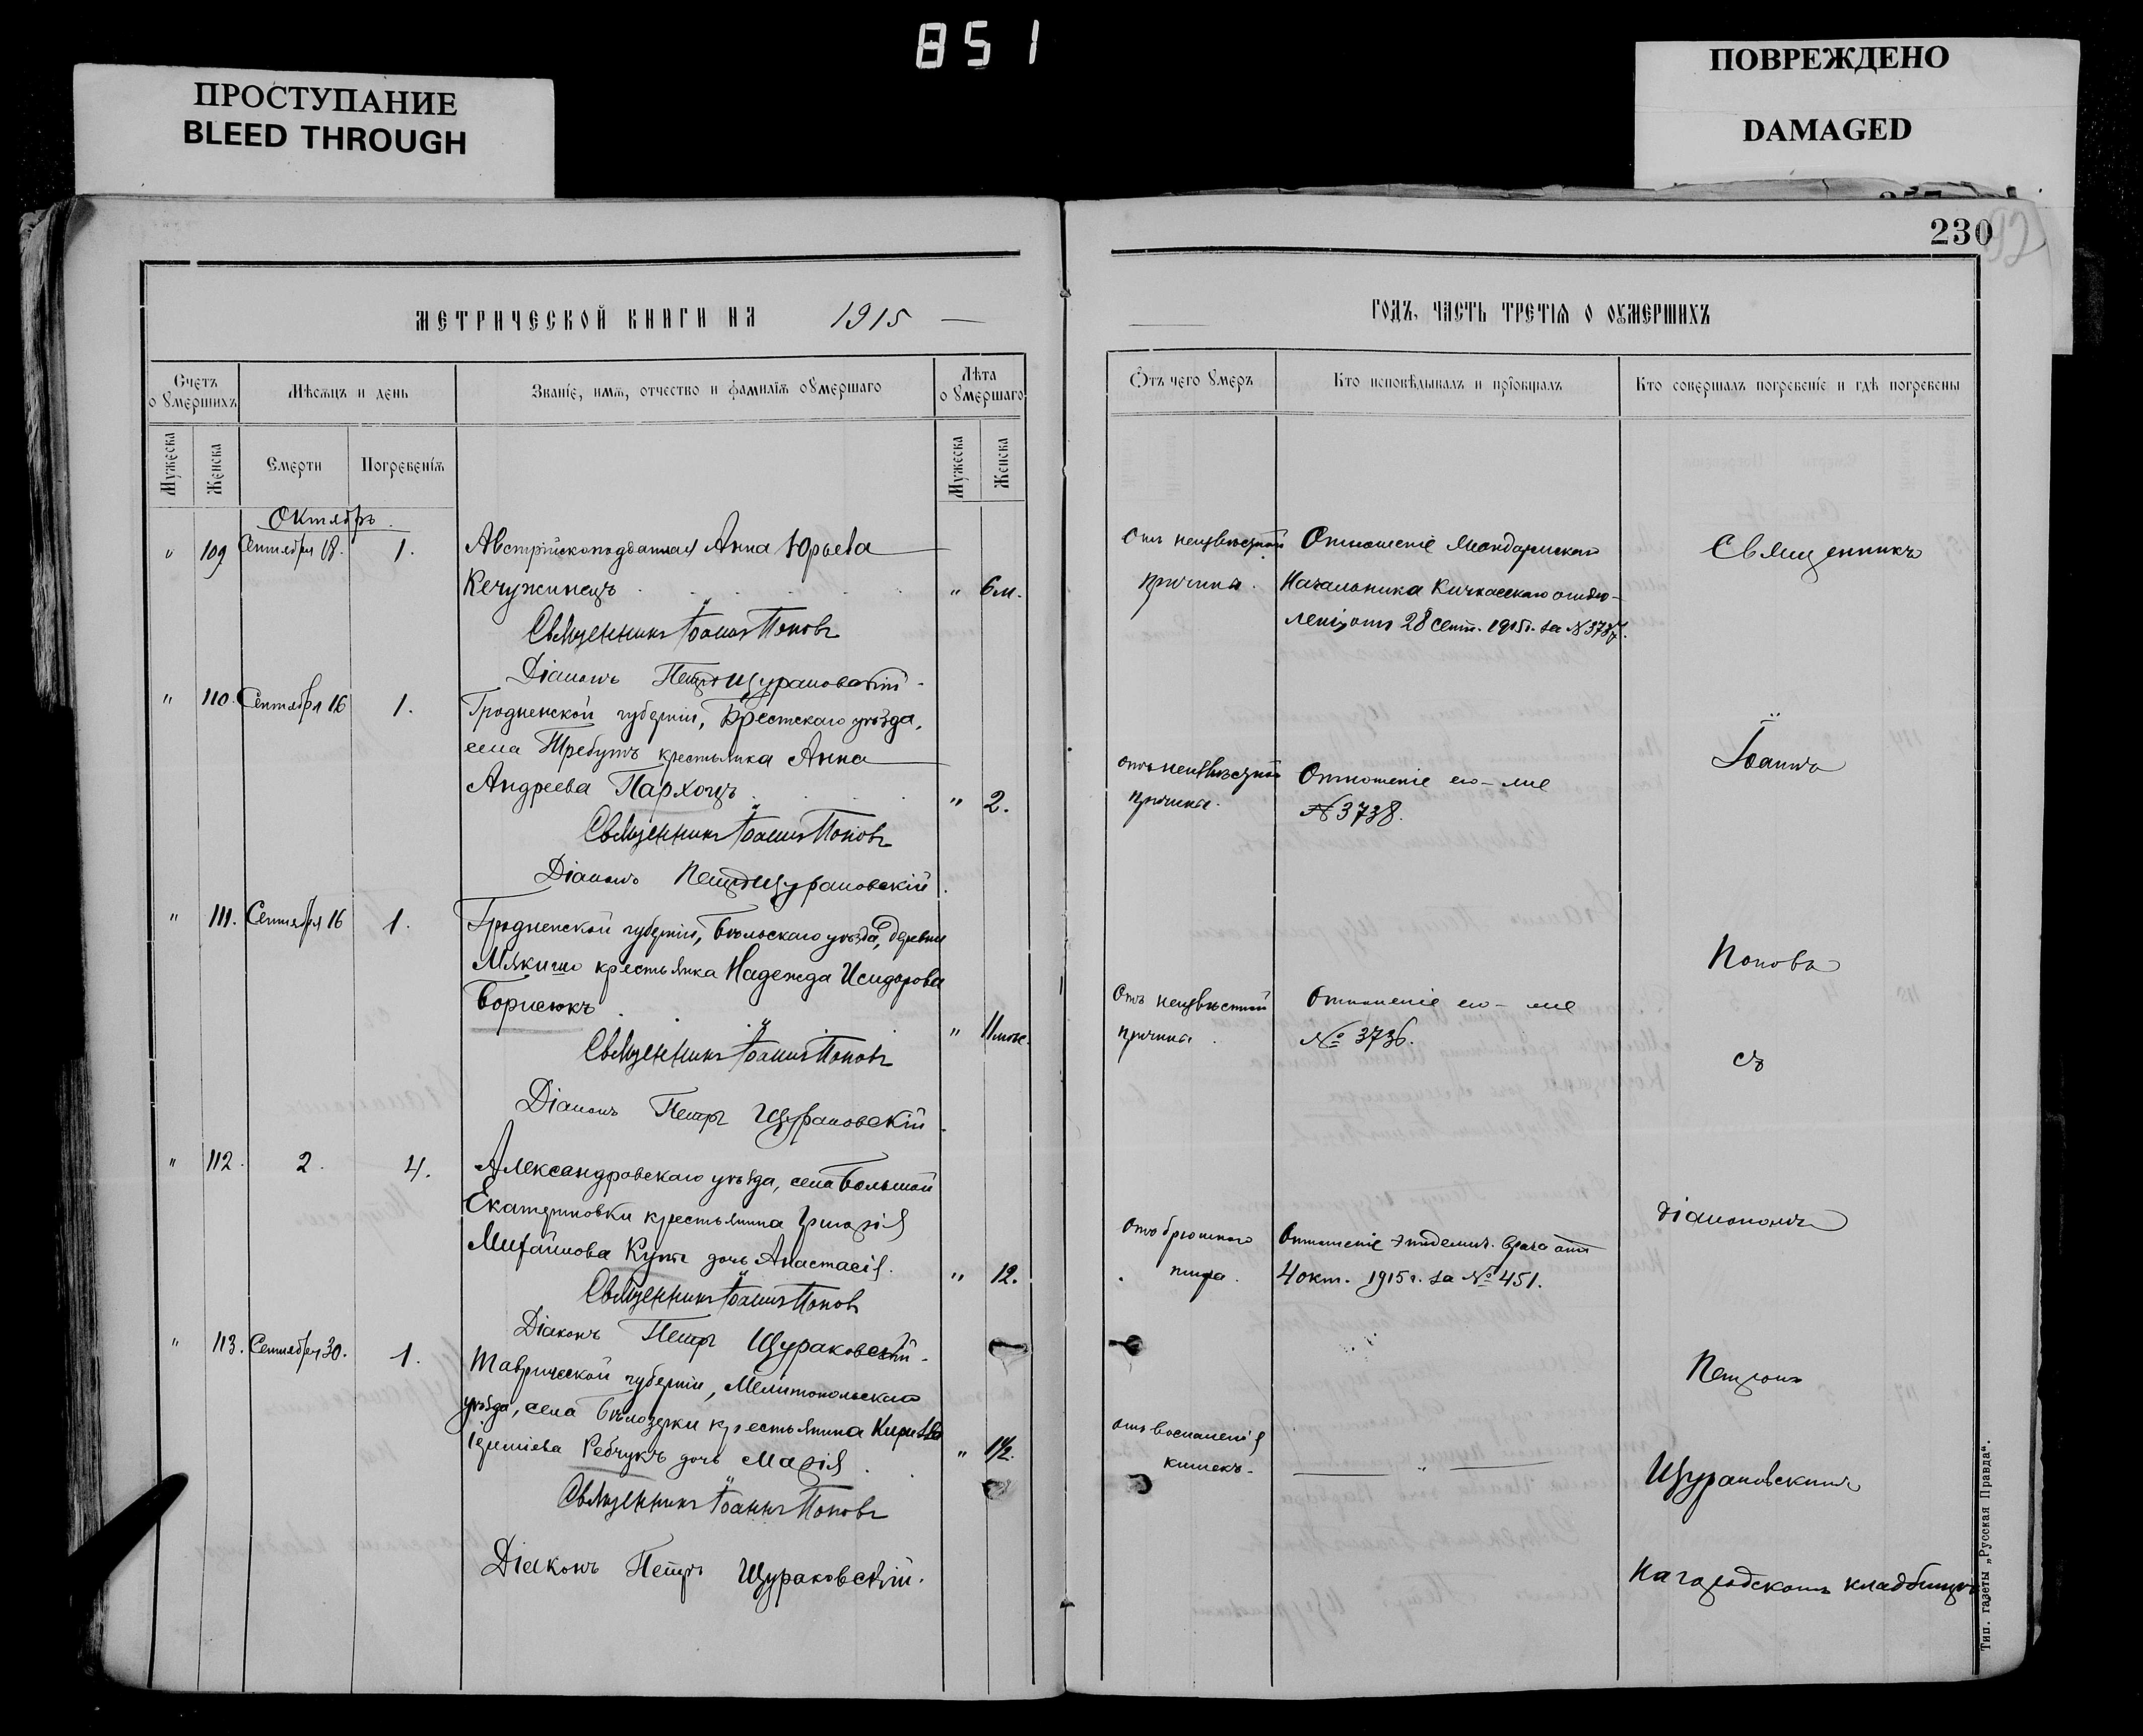 851
ПРОСТУПАНИЕ
BLEED THROUGH
ПОВРЕЖДЕНО
DAMAGED
230
МЕТРИЧЕСКОЙ КНИГИ НА 1915
ГОДЪ, ЧАСТЬ ТРЕТІѦ О ОУМЕРШИХЪ
Счетъ о умершихъ
Мѣсяцъ и день
Званіе, имя, отчество и фамилія оумершаго
Лѣта оумершаго
Мужеска
Женска
Смерти
Погребенія
Мужеска
Женска
Отъ чего умеръ
Кто исповѣдывалъ и пріобщалъ
Кто совершалъ погребеніе и гдѣ погребены
Октябрь.
" 109 Сентября 18. 1. Австрійскоподданная Анна Юрьева
" 6 м.
Священникъ Іоаннъ Поповъ
Діаконъ Петръ Щураковскій
Отъ неизвѣстной
причины.
Отношеніе Жандармскаго
Начальника Кичкасскаго отдѣ-
ленія отъ 28 сент. 1915 г. за № 3737.
" 110. Сентября 16 1. Гродненской губерніи, Брестскаго уѣзда,
села Требутъ крестьянка Анна
Андреева Пархоцъ " 2.
Священникъ Іоаннъ Поповъ
Діаконъ Петръ Щураковскій
отъ неизвѣстной
причины.
Отношеніе его-же
№ 3738.
" 111. Сентября 16 1. Гродненской губерніи, Бѣльскаго уѣзда, деревни
крестьянка Надежда Исидорова
Борисюкъ " 11
Священникъ Іоаннъ Поповъ
Діаконъ Петръ Щураковскій
Отъ неизвѣстной
причины.
Отношеніе его-же
№ 3736.
" 112. 2. 4. Александровскаго уѣзда, села Большой
Екатериновки крестьянина Григорія
Михайлова дочь Анастасія. " 12.
Священникъ Іоаннъ Поповъ
Діаконъ Петръ Щураковскій.
Отъ брюшного
тифа.
Отношеніе эпидемич. врача отъ
4 окт. 1915 г. за № 451.
" 113. Сентября 30. 1. Таврической губерніи, Мелитопольскаго
уѣзда, села Бѣлозерки крестьянина Кирилла
Ребчукъ дочь Марія " 1½.
Священникъ Іоаннъ Поповъ
Діаконъ Петръ Щураковскій.
отъ воспаленія
кишекъ.
"
Священникъ
Іоаннъ
Поповъ
съ
діакономъ
Петромъ
Щураковскимъ
На городскомъ кладбищѣ
Тип. газеты „Русская Правда“.